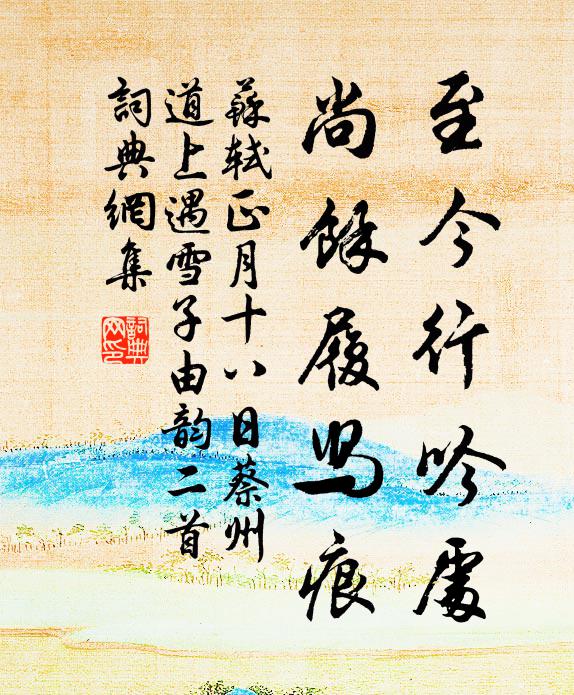 至今行吟處
尚餘履舃痕
蘇軾正月十八日蔡州
道上遇雪子由韵二首
詞典網集
詞典
网印